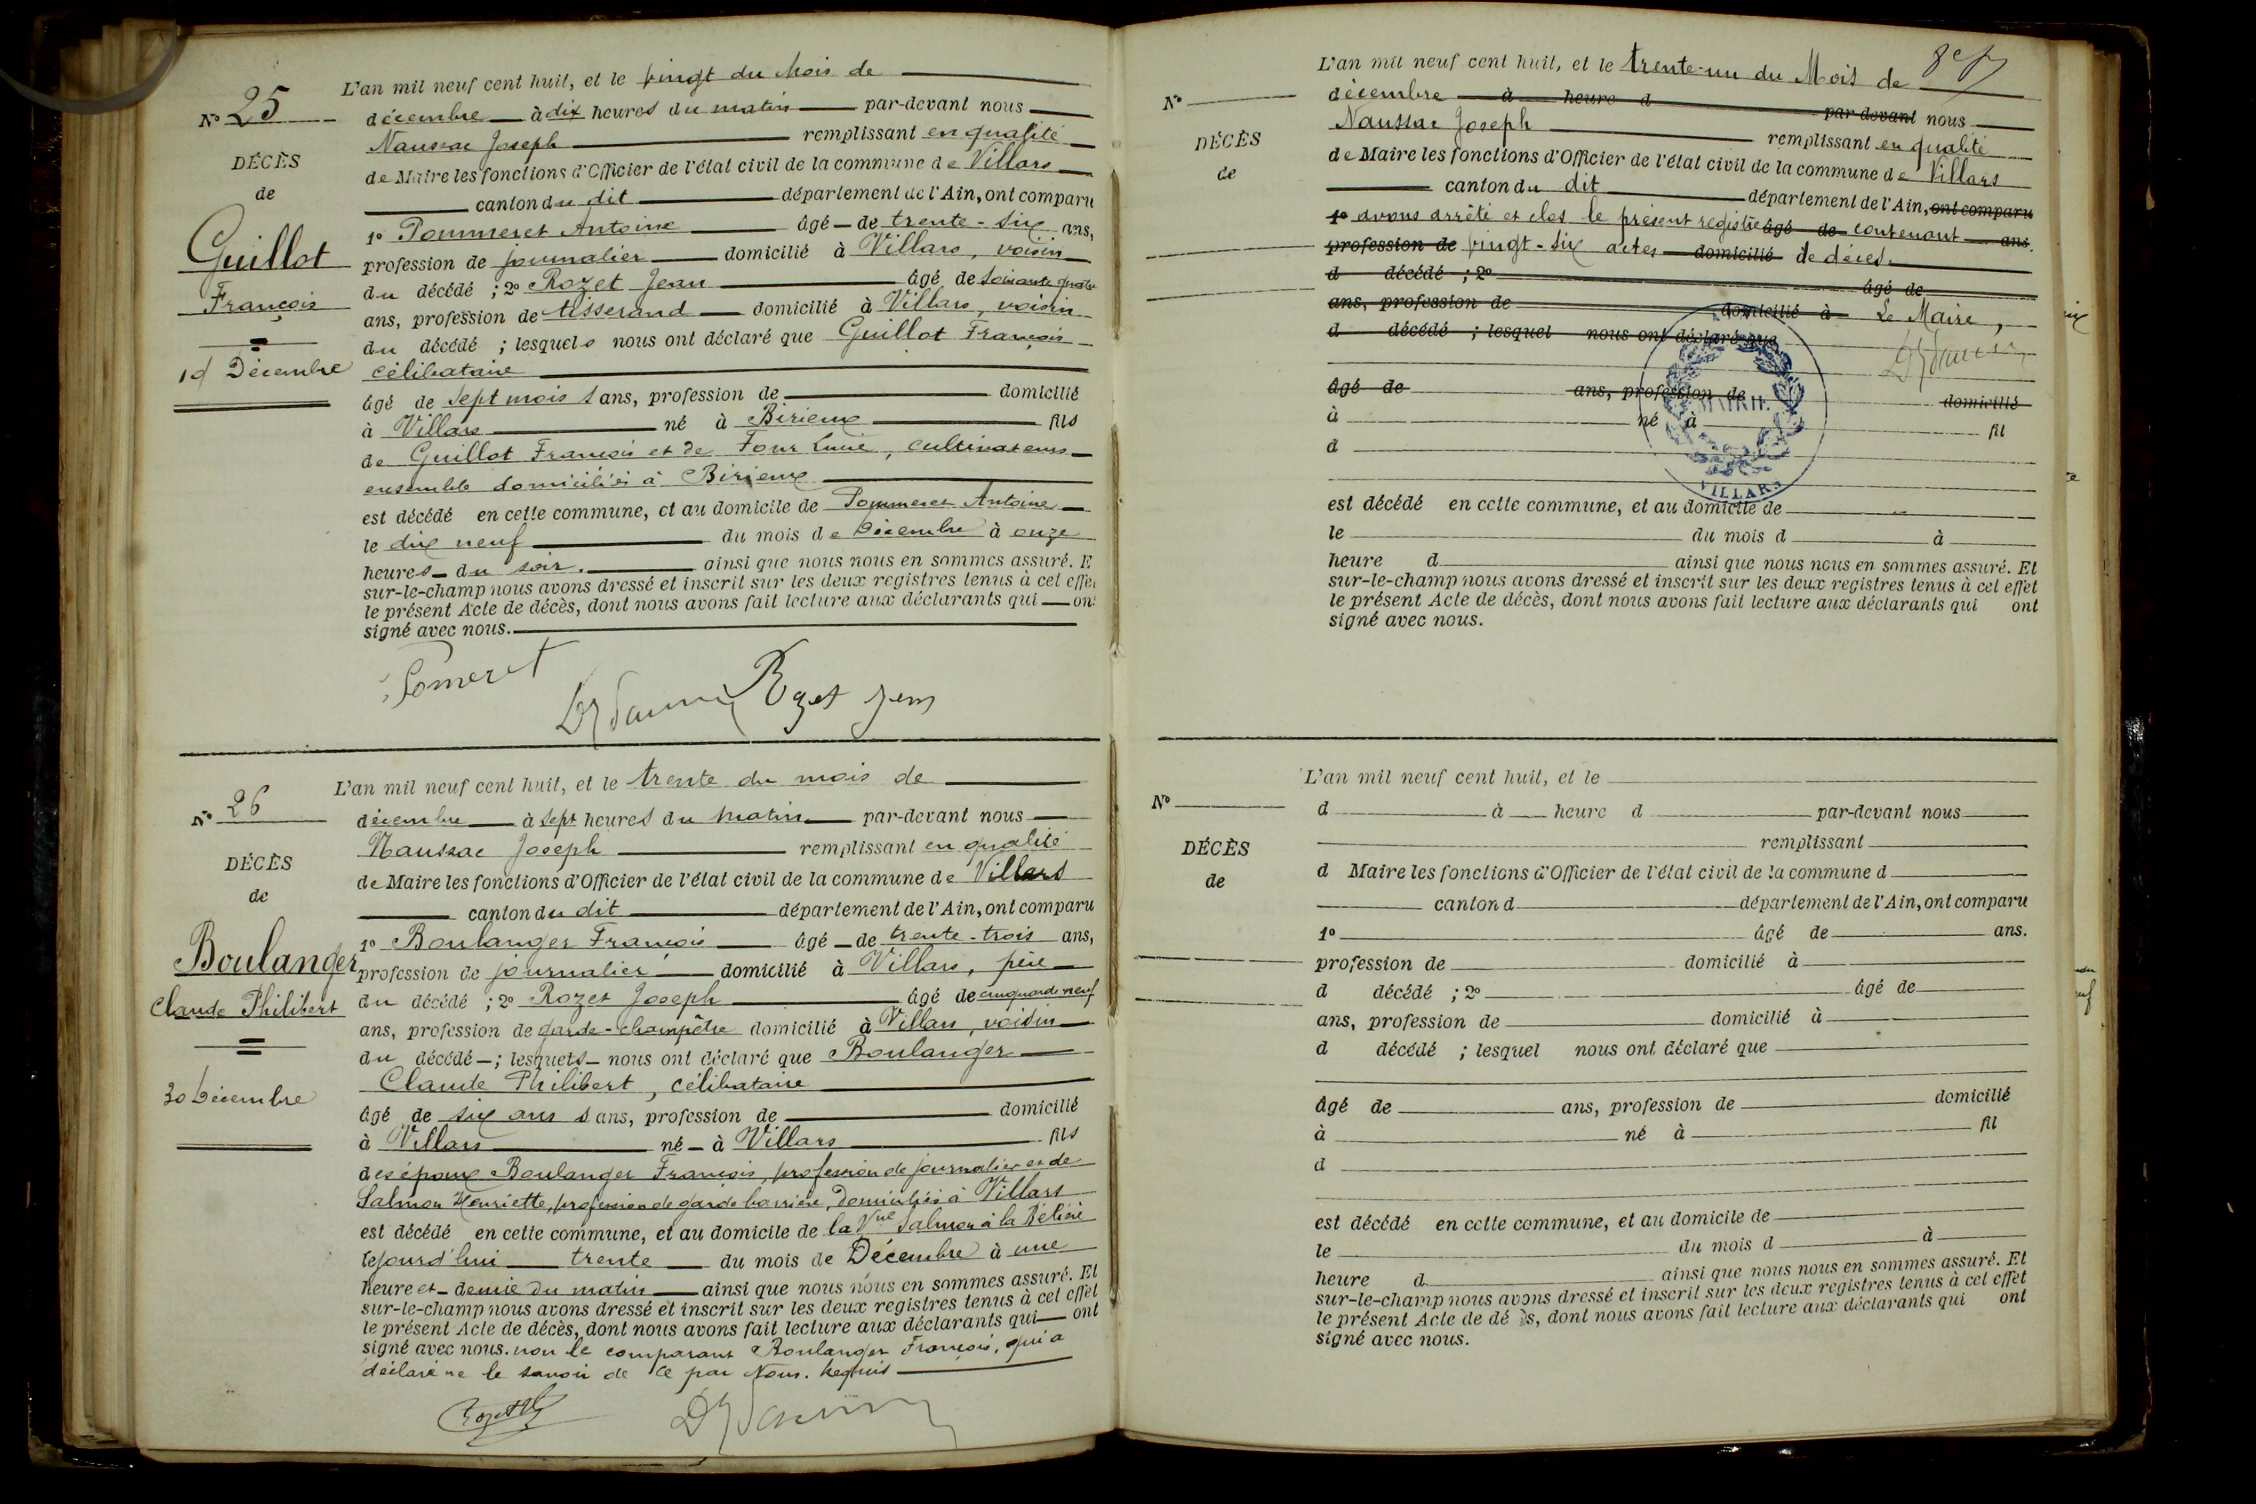 N° 25
DÉCÈS
de
Guillot
François
19 Décembre
L'an mil neuf cent huit, et le vingt du Mois de
décembre à dix heures du matin par-devant nous
Naussac Joseph remplissant en qualité
de Maire les fonctions d'Officier de l'état civil de la commune de Villars
canton du dit département de l'Ain, ont comparu
1° Pommeret Antoine âgé de trente-six ans,
profession de journalier domicilié à Villars, voisin
du décédé ; 2° Rozet Jean âgé de soixante quatre
ans, profession de tisserand domicilié à Villars, voisin
du décédé ; lesquels nous ont déclaré que Guillot François
célibataire
âgé de sept mois s ans, profession de domicilié
à Villars né à Birieux fils
de Guillot François et de Four Lucie, cultivateurs
ensemble domiciliés à Birieux
est décédé en cette commune, et au domicile de Pommeret Antoine
le dix neuf du mois de Décembre à onze
heures du soir. ainsi que nous nous en sommes assuré. E
sur-le-champ nous avons dressé et inscrit sur les deux registres tenus à cet effet
le présent Acte de décès, dont nous avons fait lecture aux déclarants qui ont
signé avec nous.
Pomeret
Rozet Jean
N° 26
DÉCÈS
de
Boulanger
Claude Philibert
30 Décembre
L'an mil neuf cent huit, et le trente du mois de
décembre à sept heures du matin par-devant nous
Naussac Joseph remplissant en qualité
de Maire les fonctions d'Officier de l'état civil de la commune de Villars
canton du dit département de l'Ain, ont comparu
1° Boulanger François âgé de trente-trois ans,
profession de journalier domicilié à Villars, père
du décédé ; 2° Rozet Joseph âgé de cinquante neuf
ans, profession de garde-champêtre domicilié à Villars, voisin
du décédé ; lesquels nous ont déclaré que Boulanger
Claude Philibert, célibataire
âgé de six ans s ans, profession de domicilié
à Villars né à Villars fils
des époux Boulanger François, profession de journalier et de
Salmon Henriette, profession de garde barrière, Domiciliés à Villars
est décédé en cette commune, et au domicile de la Vve Salmon à la
le jourd'hui trente du mois de Décembre à une
heure et demie du matin ainsi que nous nous en sommes assuré. Et
sur-le-champ nous avons dressé et inscrit sur les deux registres tenus à cet effet
le présent Acte de décès, dont nous avons fait lecture aux déclarants qui ont
signé avec nous. non le comparant Boulanger François, qui a
déclaré ne le savoir de ce par Nous. Requis
N°
DÉCÈS
de
L'an mil neuf cent huit, et le trente-un du Mois de
décembre à heure d par-devant nous
Naussac Joseph remplissant en qualité
de Maire les fonctions d'Officier de l'état civil de la commune de Villars
canton du dit département de l'Ain, ont comparu
1° avons arrêté et clos le présent registre âgé de contenant ans.
profession de vingt-six actes domicilié de décès.
d décédé ; 2° âgé de
ans, profession de domicilié à Le Maire,
d décédé ; lesquel nous ont déclaré que
âgé de ans, profession de domicilié
à né à fil
d
MAIRIE
VILLARS
est décédé en cette commune, et au domicile de
le du mois d à
heure d ainsi que nous nous en sommes assuré. Et
sur-le-champ nous avons dressé et inscrit sur les deux registres tenus à cet effet
le présent Acte de décès, dont nous avons fait lecture aux déclarants qui ont
signé avec nous.
N°
DÉCÈS
de
L'an mil neuf cent huit, et le
d à heure d par-devant nous
remplissant
d Maire les fonctions d'Officier de l'état civil de la commune d
canton d département de l'Ain, ont comparu
1° âgé de ans.
profession de domicilié à
d décédé ; 2° âgé de
ans, profession de domicilié à
d décédé ; lesquel nous ont déclaré que
âgé de ans, profession de domicilié
à né à fil
d
est décédé en cette commune, et au domicile de
le du mois d à
heure d ainsi que nous nous en sommes assuré. Et
sur-le-champ nous avons dressé et inscrit sur les deux registres tenus à cet effet
le présent Acte de dé ès, dont nous avons fait lecture aux déclarants qui ont
signé avec nous.